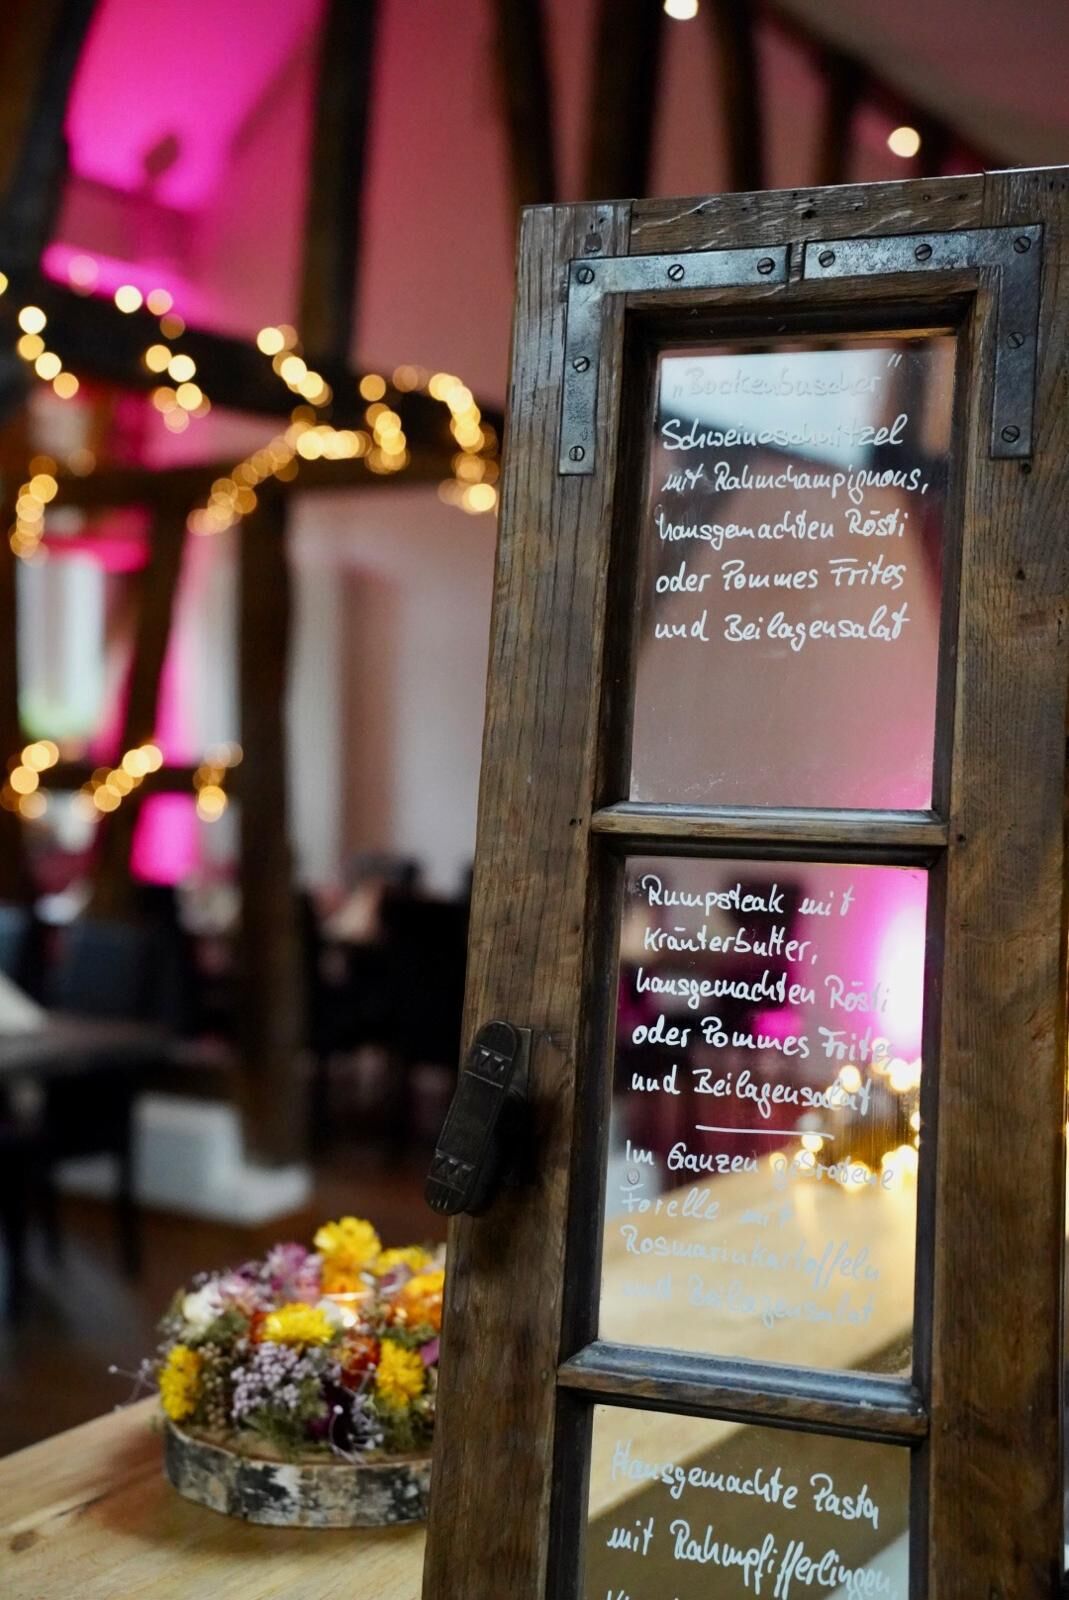 „Bockenbuscher"
Schweineschnitzel
mit Rahmchampignons,
hausgemachten Rösti
oder Pommes Frites
und Beilagensalat
Rumpsteak mit
Kräuterbutter,
hausgemachten Rösti
oder Pommes Frites
und Beilagensalat
Im Ganzen gebratene
Forelle mit
Rosmarinkartoffeln
und Beilagensalat
Hausgemachte Pasta
mit Rahmpfifferlingen,